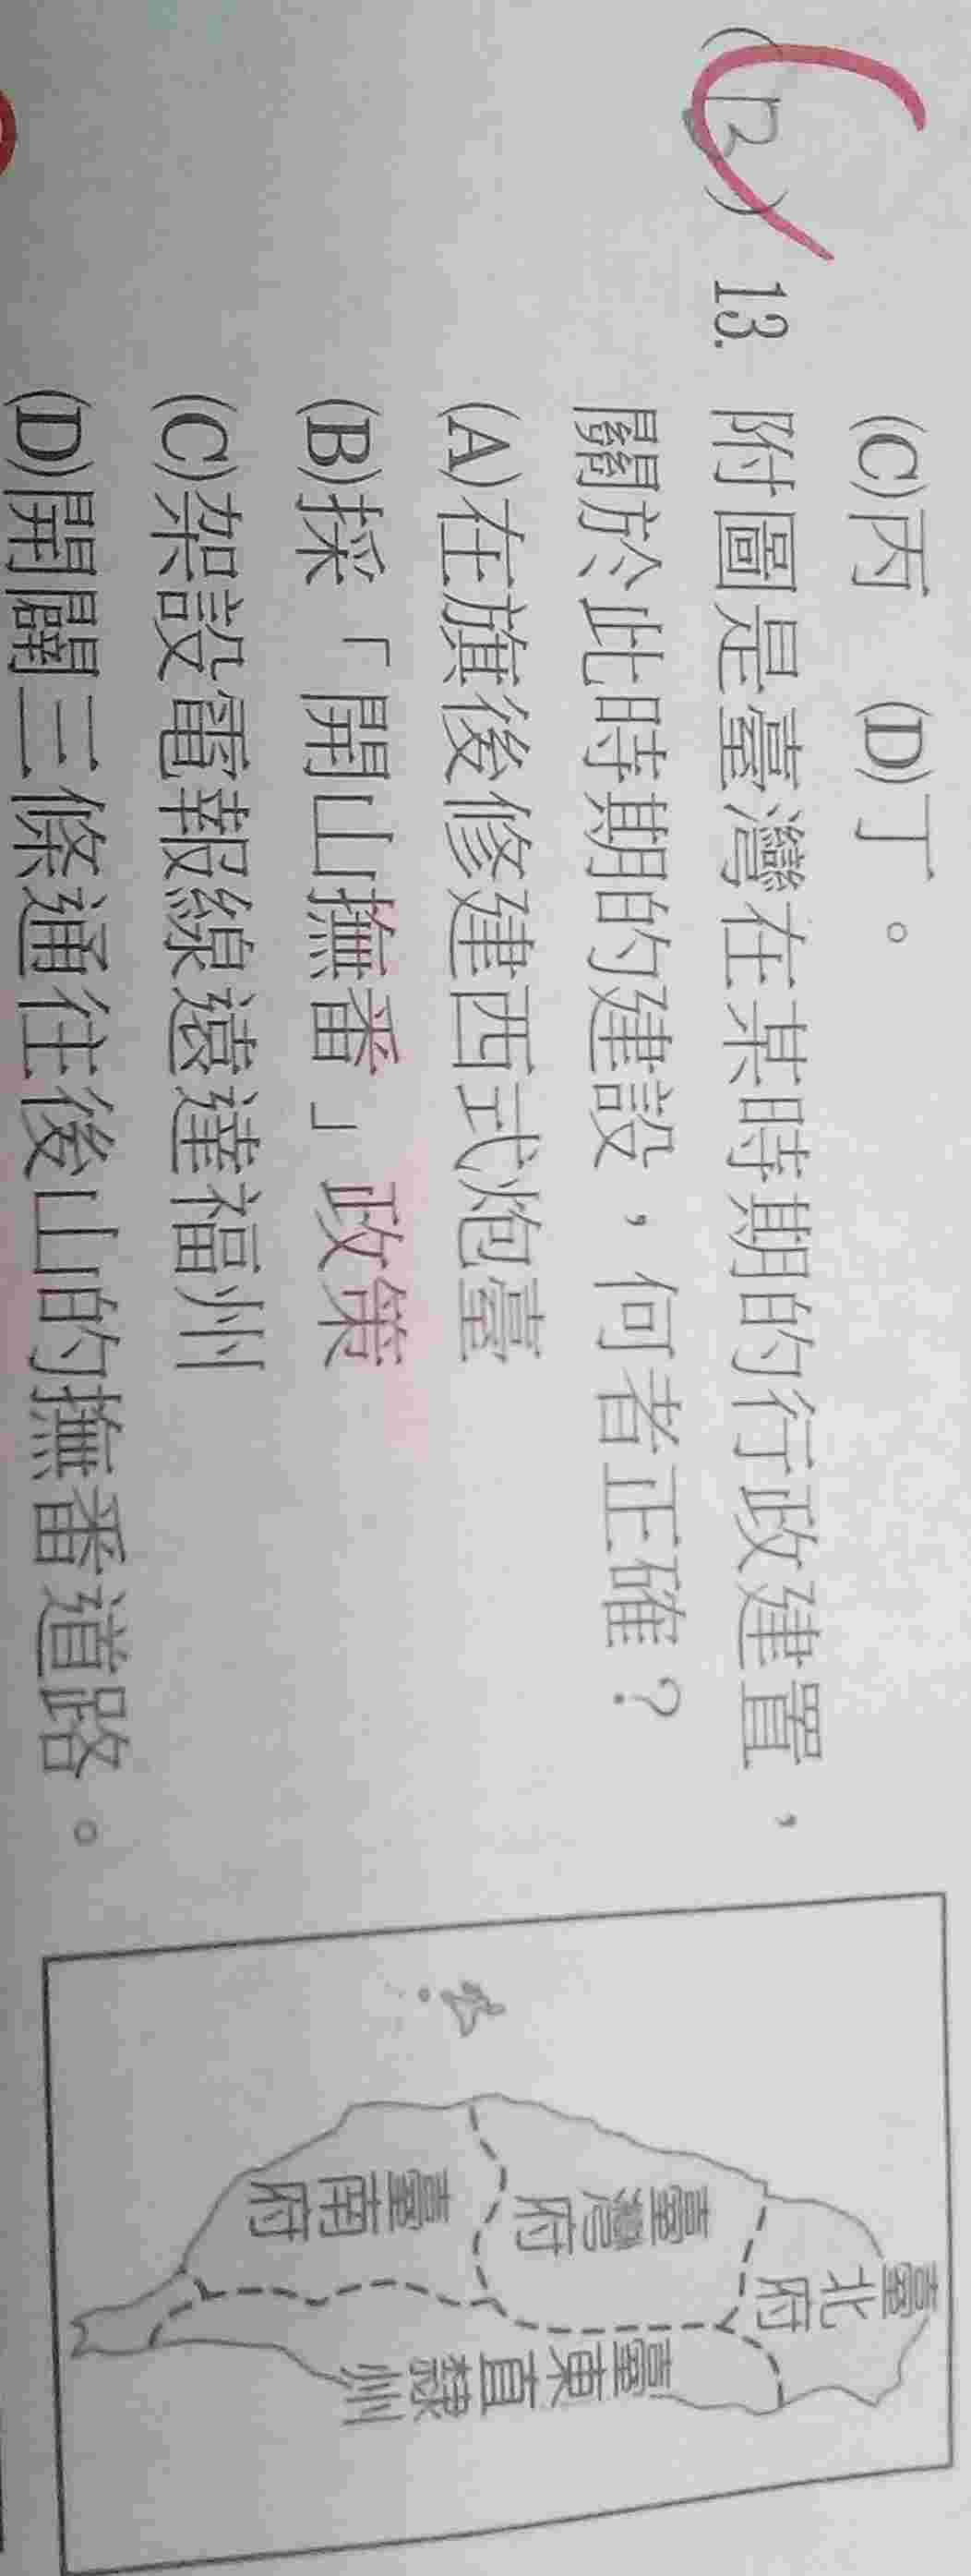 (C)丙 (D)丁。
(B) 13. 附圖是臺灣在某時期的行政建置，
關於此時期的建設，何者正確？
(A)在旗後修建西式炮臺
(B)採「開山撫番」政策
(C)架設電報線遠達福州
(D)開闢三條通往後山的撫番道路。
臺北府
臺灣府
臺東直隸州
臺南府